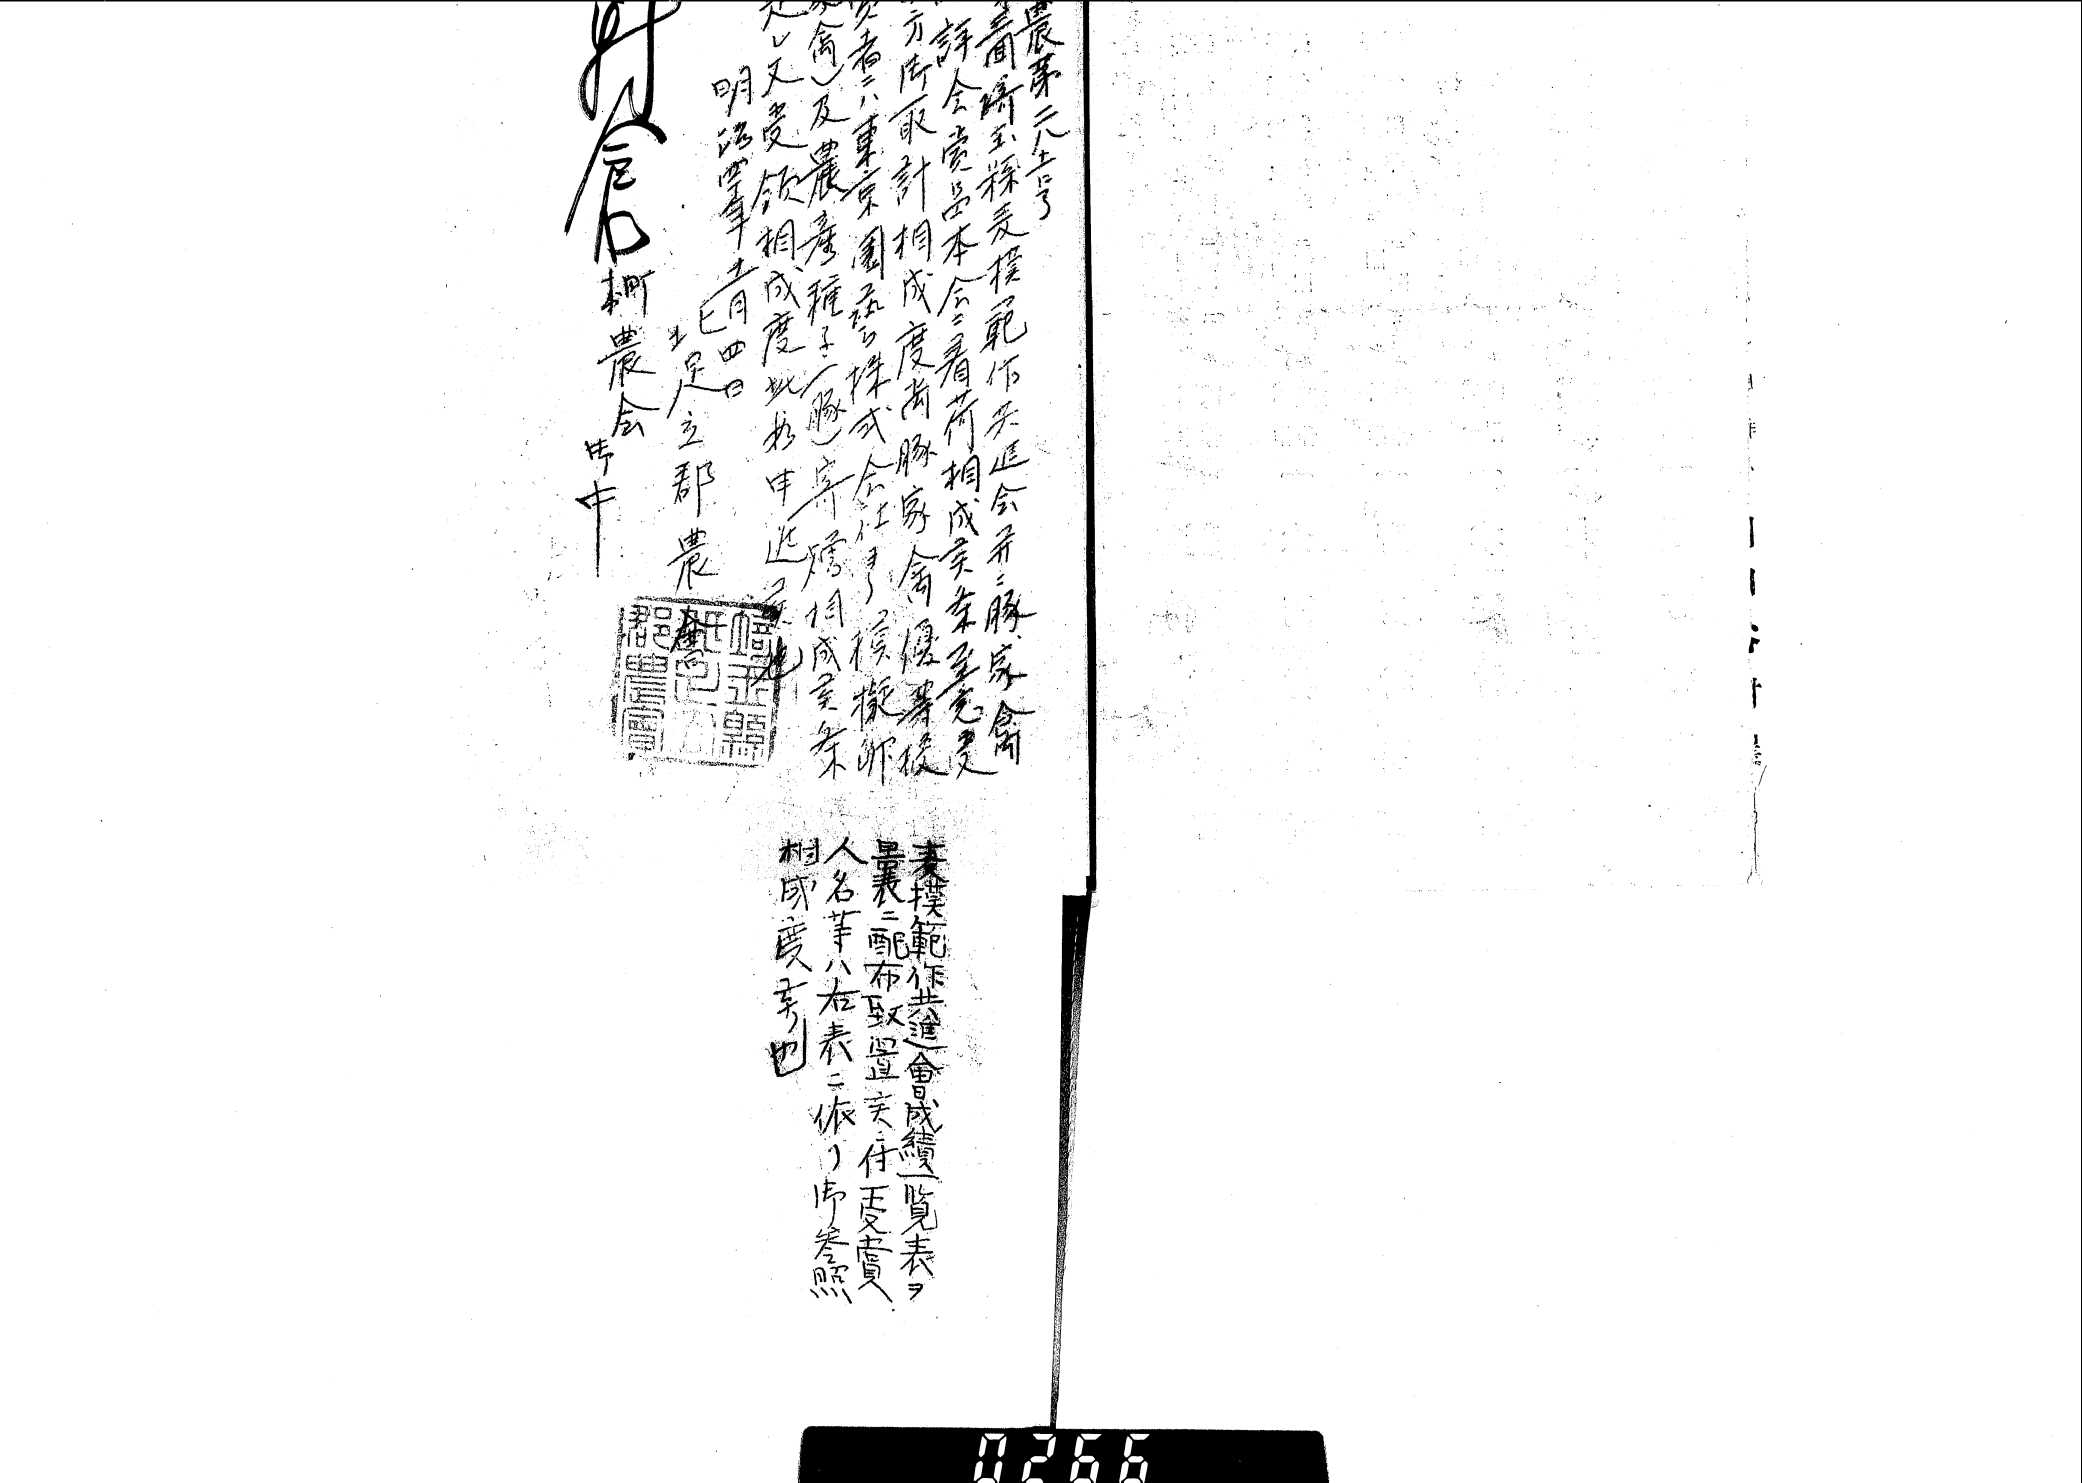 農第二八七号
埼玉縣麦模範作共進会并ニ豚家禽
評会賞品本会ニ着荷相成候条至急受
方御取計相成度尚豚家禽優等授
賞者ニハ東京園藝株式会社ヨリ模擬卵
家禽)及農産種子(豚)寄贈相成候条
是又受領相成度此段申進候也
明治四年十二月四日
北足立郡農会
町農会
御中
埼玉縣北足立郡農會
麦模範作共進會成績一覧表ヲ
曩ニ配布致置候ニ付受賞
人名等ハ右表ニ依リ御参照
相成度候也
0266